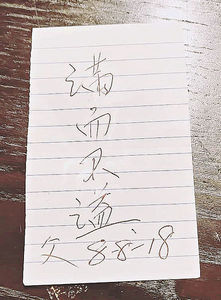 满而不溢
文 8-8-18